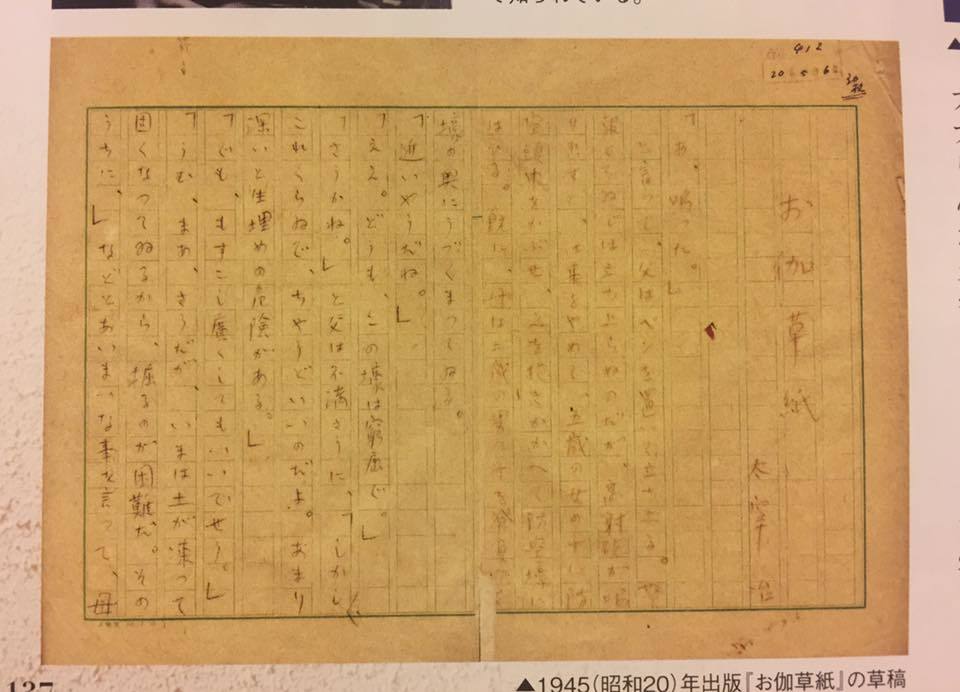 で知られている。
お伽草紙
太宰治
「あ、鳴つた。」
と言つて、父はペンを置いて立ち上る。
報くらゐでは立ち上らぬのだが、高射砲が鳴
り出すと、仕事をやめて、五歳の女の子に防
空頭巾をかぶせ、これを抱きかかへて防空壕に
はひる。既に、母は二歳の男の子を背負つて
壕の奥にうづくまつてゐる。
「近いやうだね。」
「ええ。どうも、この壕は窮屈で。」
「さうかね。」と父は不満さうに、「しかし、
これくらゐで、ちやうどいいのだよ。あまり
深いと生埋めの危険がある。」
「でも、もすこし廣くしてもいいでせう。」
「うむ、まあ、さうだが、いまは土が凍つて
固くなつてゐるから、掘るのが困難だ。その
うちに、」などとあいまいな事を言つて、母
137
▲1945(昭和20)年出版『お伽草紙』の草稿